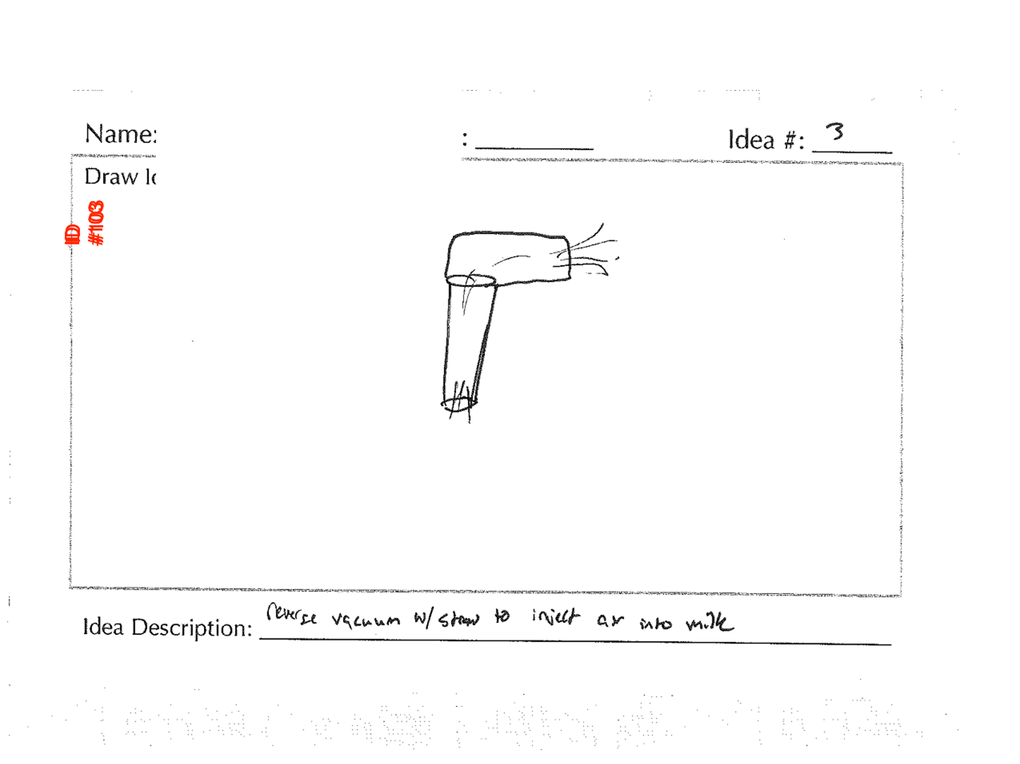 Name: : Idea #: 3
Draw Id
ID
#103
Idea Description: reverse vacuum w/ straw to inject air into milk